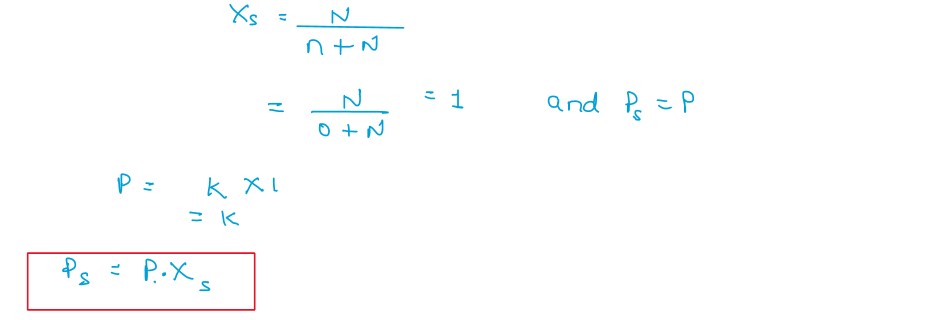 Xs = N / n + N
= N / 0 + N = 1 and Ps = P
P = K × 1
= K
Ps = P.Xs